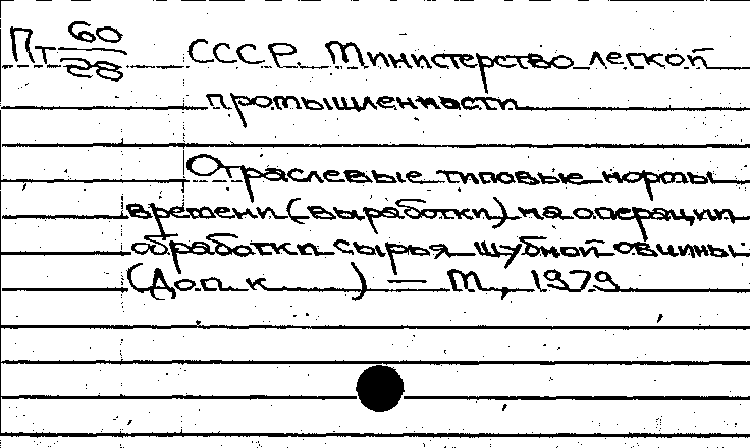 Пт 60/28 СССР. Министерство легкой
промышленности
Отраслевые типовые нормы
времени (выработки) на операции
обработки сырья шубной овчины
(Доп. к ) — М., 1979